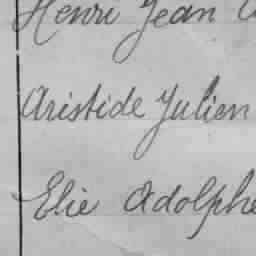 Henri Jean
Aristide Julien
Elie Adolphe